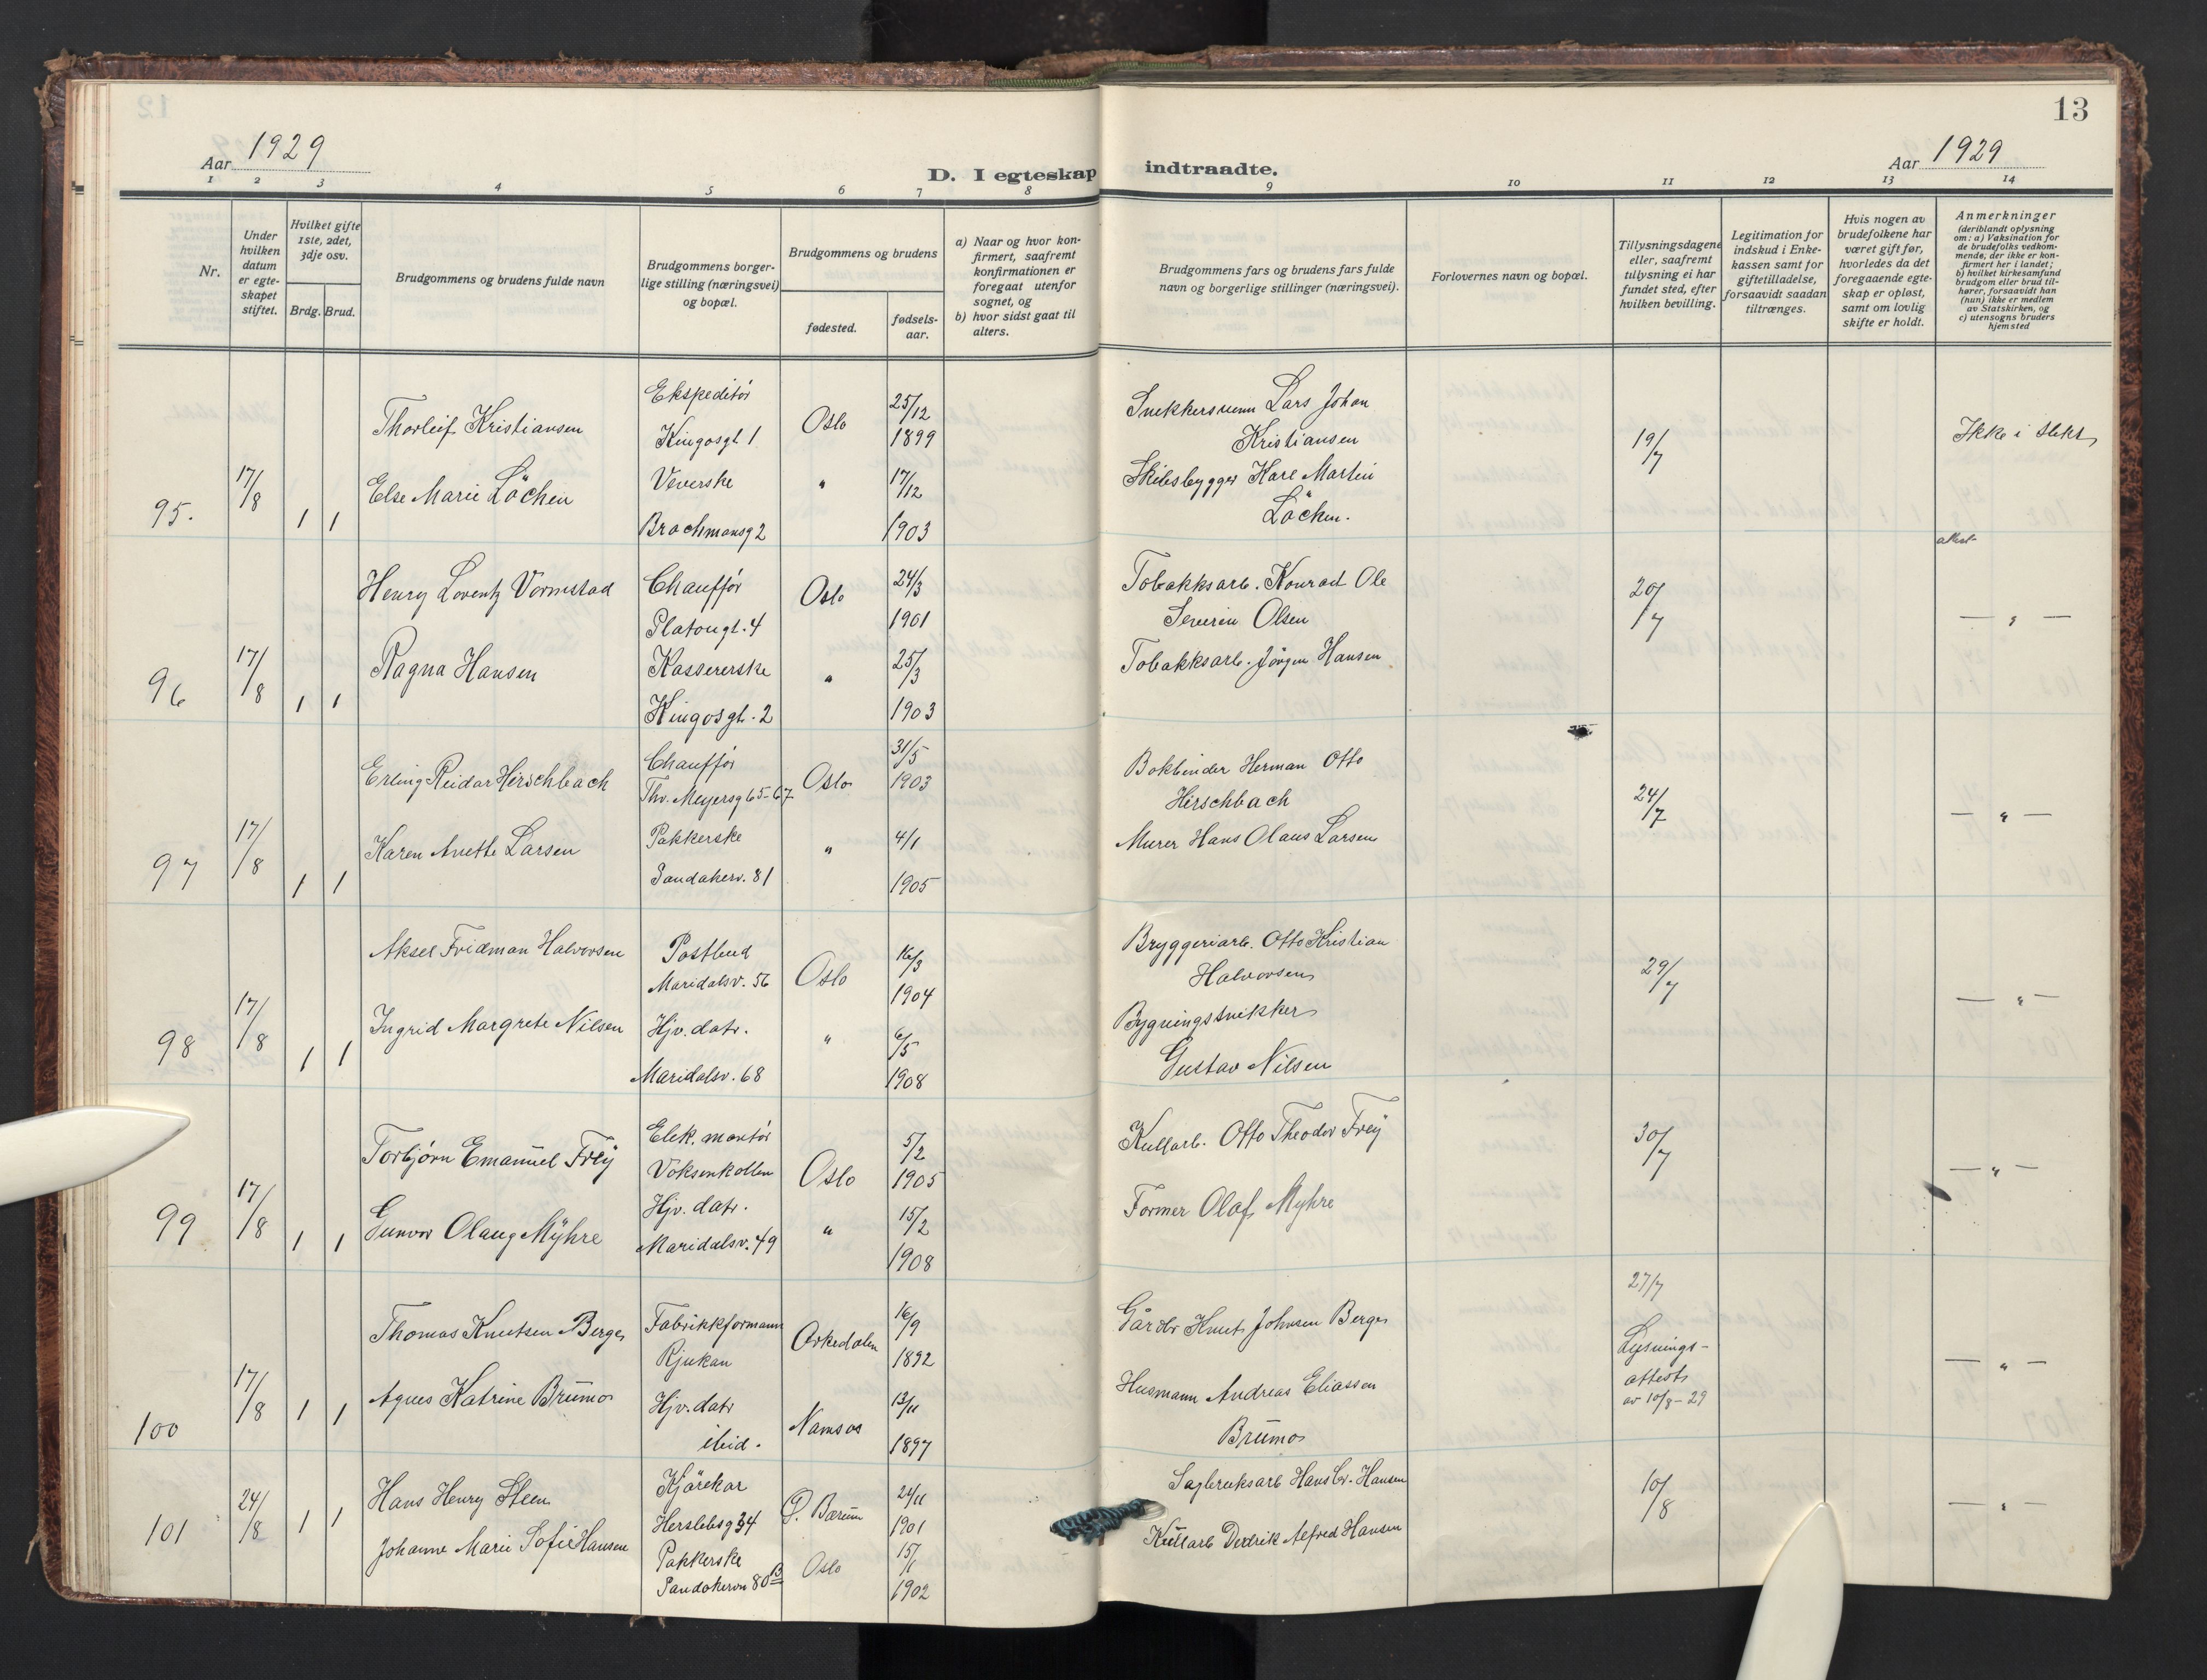 12
13
Aar 1929
Aar 1929
D. I egteskap indtraadte.
1 2 3 4 5 6 7 8 9 10 11 12 13 14
Nr.
Under hvilken datum er egteskapet stiftet.
Hvilket gifte 1ste, 2det, 3dje osv.
Brdg. Brud.
Brudgommens og brudens fulde navn
Brudgommens borgerlige stilling (næringsvei) og bopæl.
Brudgommens og brudens
fødested.
fødselsaar.
a) Naar og hvor konfirmert, saafremt konfirmationen er foregaat utenfor sognet, og
b) hvor sidst gaat til alters.
Brudgommens fars og brudens fars fulde navn og borgerlige stillinger (næringsvei).
Forlovernes navn og bopæl.
Tillysningsdagene eller, saafremt tillysning ei har fundet sted, efter hvilken bevilling.
Legitimation for indskud i Enkekassen samt for giftetilladelse, forsaavidt saadan tiltrænges.
Hvis nogen av brudefolkene har været gift før, hvorledes da det foregaaende egteskap er opløst, samt om lovlig skifte er holdt.
Anmerkninger (deriblandt oplysning om: a) Vaksination for de brudefolks vedkommende, der ikke er konfirmert her i landet; b) hvilket kirkesamfund brudgom eller brud tilhører, forsaavidt han (hun) ikke er medlem av Statskirken, og c) utensogns bruders hjemsted
95. 17/8 1 1
Thorleif Kristiansen
Ekspeditör
Kingosgt 1
Oslo
25/12
1899
Else Marie Löchen
Veverske
Brochmansg 2
"
17/12
1903
Snekkersvenn Lars Johan
Kristiansen
Skibsbygger Karl Martin
Löchen.
19/7
Ikke i slekt
96 17/8 1 1
Henry Lorentz Vormstad
Chaufför
Platougt. 4
Oslo
24/3
1901
Ragna Hansen
Kassererske
Kingosgt. 2
"
25/3
1903
Tobakksarb. Konrad Ole
Severin Olsen
Tobakksarb. Jörgen Hansen
20/7
— " —
97 17/8 1 1
Erling Reidar Hirschbach
Chaufför
Thv. Meyersg 65-67
Oslo
31/5
1903
Karen Anette Larsen
Pakkerske
Sandakerv. 81
"
4/1
1905
Bokbinder Herman Otto
Hirschbach
Murer Hans Olaus Larsen
24/7
— " —
98 17/8 1 1
Aksel Fridman Halvorsen
Postbud
Maridalsv. 56
Oslo
16/3
1904
Ingrid Margrete Nilsen
Hjv. datr.
Maridalsv. 68
"
6/5
1908
Bryggeriarb. Otto Kristian
Halvorsen
Bygningssnikker
Gustav Nilsen
29/7
— " —
99 17/8 1 1
Torbjörn Emanuel Frey
Elek. montör
Voksenkollen
Oslo
5/2
1905
Gunvor Olaug Myhre
Hjv. datr.
Maridalsv. 49
"
15/2
1908
Kullarb. Otto Theodor Frey
Former Olaf Myhre
30/7
— " —
100 17/8 1 1
Thomas Knutsen Berge
Fabrikkformann
Rjukan
Orkedalen
16/9
1892
Agnes Katrine Brumo
Hjv. datr
ibid.
Namsos
13/11
1897
Gårdbr Knut Johnsen Berge
Husmann Andreas Eliassen
Brumo
27/7
Lysnings-
attest
av 10/8-29
— " —
101 24/8 1 1
Hans Henry Steen
Kjörekar
Herslebsg 34
Ö. Bærum
24/11
1901
Johanne Marie Sofie Hansen
Pakkerske
Sandakervn 80 B
Oslo
15/1
1902
Sagbruksarb Hans Hansen
Kullarb Alfred Hansen
10/8
— " —